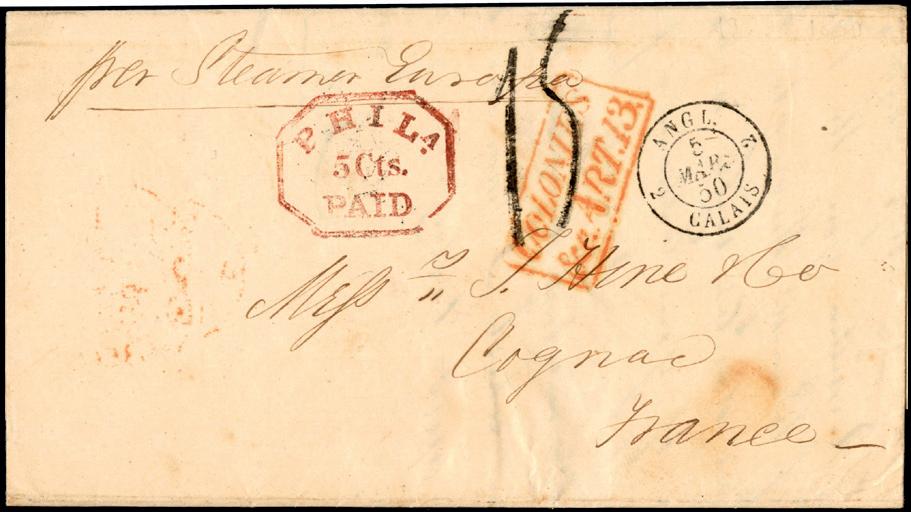 per Steamer Europa
15
PHILA
5 Cts.
PAID
COLONIES
&c. ART. 13.
ANGL.
2 2
5
MARS
50
CALAIS
Messrs T. Hine & Co
Cognac
France